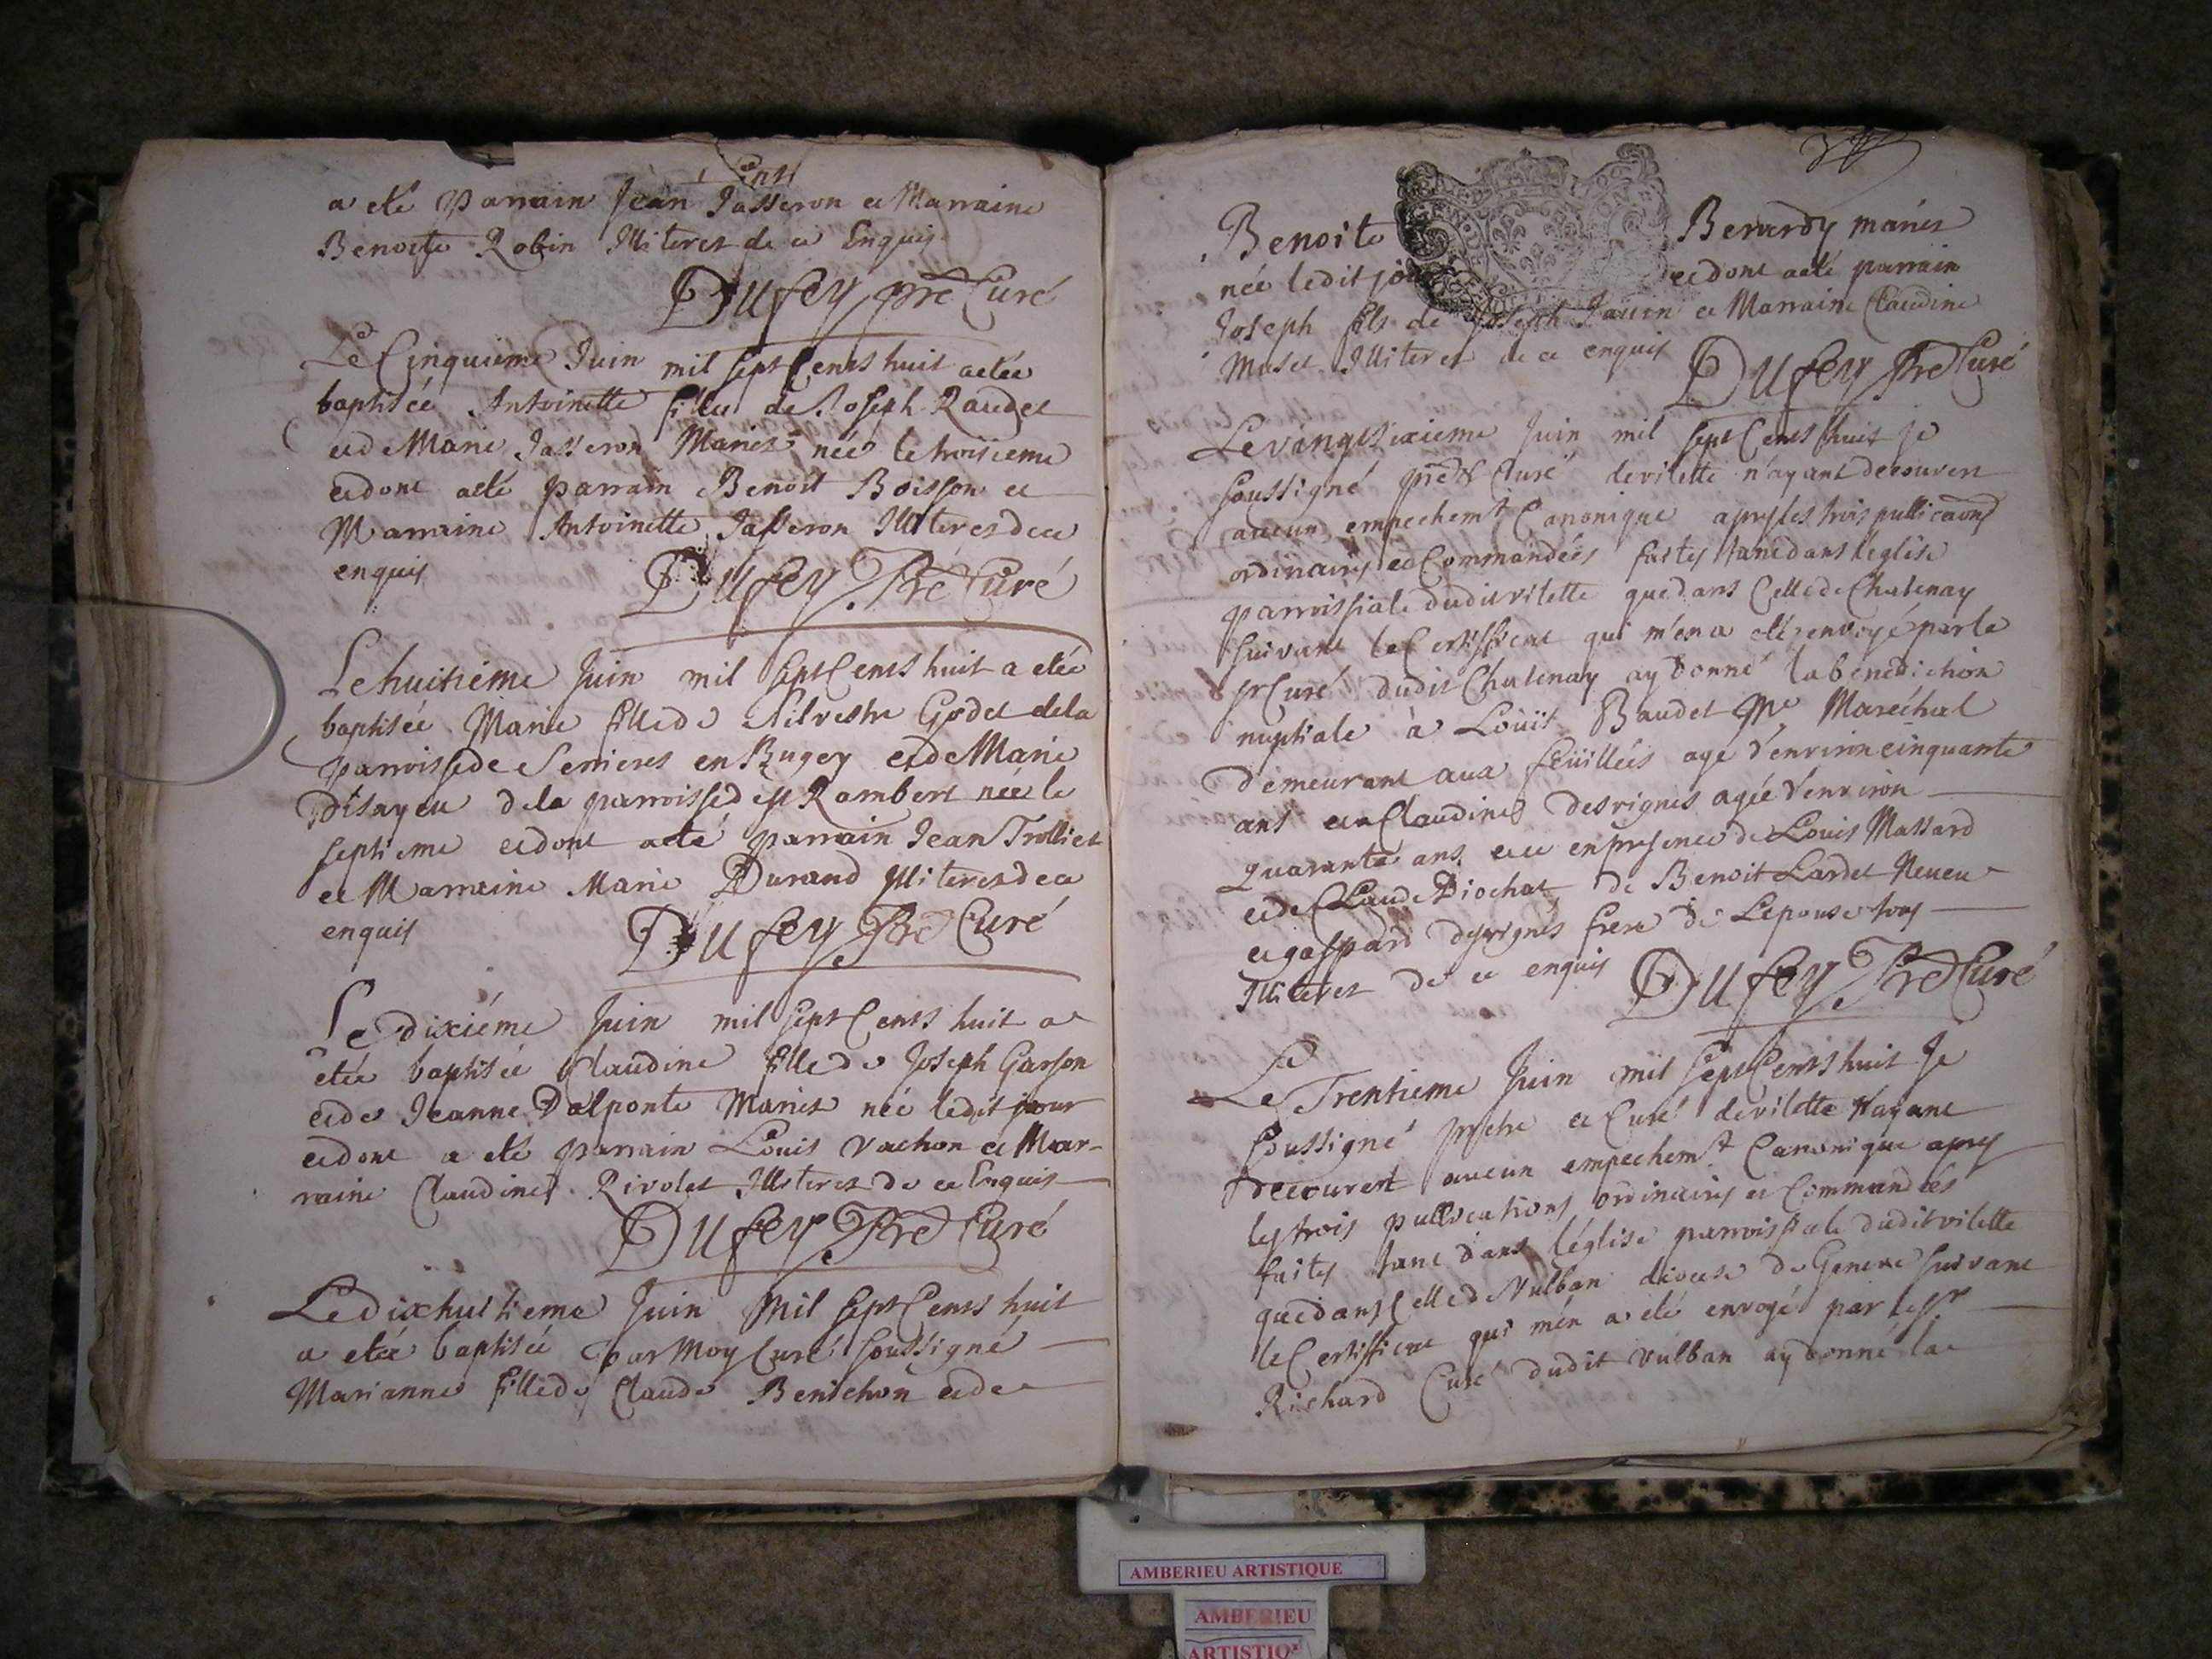 a eté parrain Jean Jasseron et Marraine
Benoite Robin Illiterez de ce Enquis
Dufey pre Curé
Le Cinquième Juin mil sept Cents huit a etée
baptisée Antoinette fille de Joseph Raudet
et de Marie Jasseron Mariez née le troisieme
et dont a eté parrain Benoit Boisson et
Marraine Antoinette Jasseron Illiterez de ce
enquis
Dufey Pre Curé
Le huitiéme Juin mil sept Cents huit a etée
baptisée Marie fille de Silvestre Godet de la
parroisse de Serrieres en Bugey et de Marie
de la parroisse de st Rambert née le
septieme et dont a eté parrain Jean Trolliet
et Marraine Marie Durand Illiterez de ce
enquis
Dufey Pre Curé
Le dixiéme Juin mil sept Cents huit a
etée baptisée Claudine fille de Joseph Garson
et de Jeanne Dalponte Mariez née ledit jour
et dont a eté parrain Louis Vachon et Mar-
raine Claudine Rivolet Illiterez de ce Enquis
Dufey Pre Curé
Le dixhuitieme Juin Mil sept Cents huit
a etée baptisée par Moy Curé soussigné
Marianne fille de Claude Benichon et de
Benoite Berardy mariez
née ledit jour et dont a eté parrain
Joseph fils de Joseph Jauin et Marraine Claudine
Muset Illiterez de ce enquis
Dufey Pre Curé
Le vingt sixieme Juin mil sept Cents huit je
soussigné pre et Curé de vilette n'ayant decouvert
aucun empechemt Canonique apres les trois
ordinaires et Commandées faites tant dans l'eglise
parroissiale dudit vilette que dans Celle de Chatenay
suivant le Certifficat qui m'en a eté envoyé par le
sr Curé dudit Chatenay ay donné la benediction
nuptiale à Loüis Baudet Me Maréchal
demeurant aux feüillées agé d'environ cinquante
ans et a Claudine Desvignes agée d'environ
quarante ans et ce en presence de Louis Massard
et de Claude Diochat de Benoit Lardet Neveu
et gaspard desvignes frere de L'epouse tous
Illiterez de ce enquis
Dufey Pre Curé
Le Trentieme Juin mil sept Cents huit Je
soussigné prestre et Curé de vilette N'ayant
decouvert aucun empechemt Canonique apres
les trois publications ordinaires et Commandées
faites tant dans l'église parroissiale dudit vilette
que dans Celle de Vulban diocese de Geneve suivant
le Certifficat qui m'en a eté envoyé par le sr
Richard Curé dudit Vulban ay donné la
AMBERIEU ARTISTIQUE
AMBERIEU